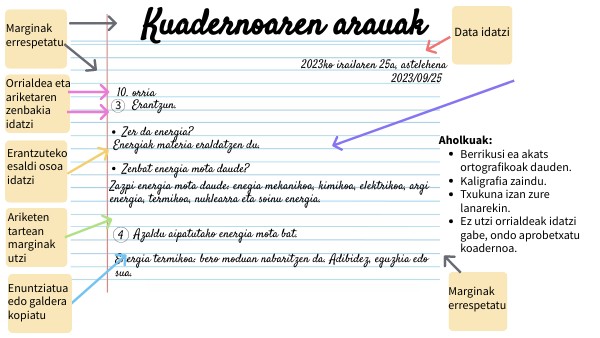 Kuadernoaren arauak
Marginak
errespetatu
Data idatzi
2023ko irailaren 25a, astelehena
2023/09/25
Orrialdea eta
ariketaren
zenbakia
idatzi
10. orria
3 Erantzun.
• Zer da energia?
Energiak materia eraldatzen du.
Erantzuteko
esaldi osoa
idatzi
• Zenbat energia mota daude?
Zazpi energia mota daude: enegia mekanikoa, kimikoa, elektrikoa, argi
energia, termikoa, nuklearra eta soinu energia.
Ariketen
tartean
marginak
utzi
4 Azaldu aipatutako energia mota bat.
Energia termikoa: bero moduan nabaritzen da. Adibidez, eguzkia edo
sua.
Enuntziatua
edo galdera
kopiatu
Aholkuak:
• Berrikusi ea akats
ortografikoak dauden.
• Kaligrafia zaindu.
• Txukuna izan zure
lanarekin.
• Ez utzi orrialdeak idatzi
gabe, ondo aprobetxatu
koadernoa.
Marginak
errespetatu